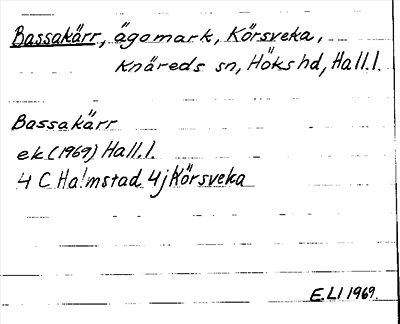 Bassakärr, ägomark, Körsveka,
Knäreds sn, Höks hd, Hall.l.
Bassakärr
ek (1969) Hall.l.
4 C Halmstad 4j Körsveka
E.LI 1969.